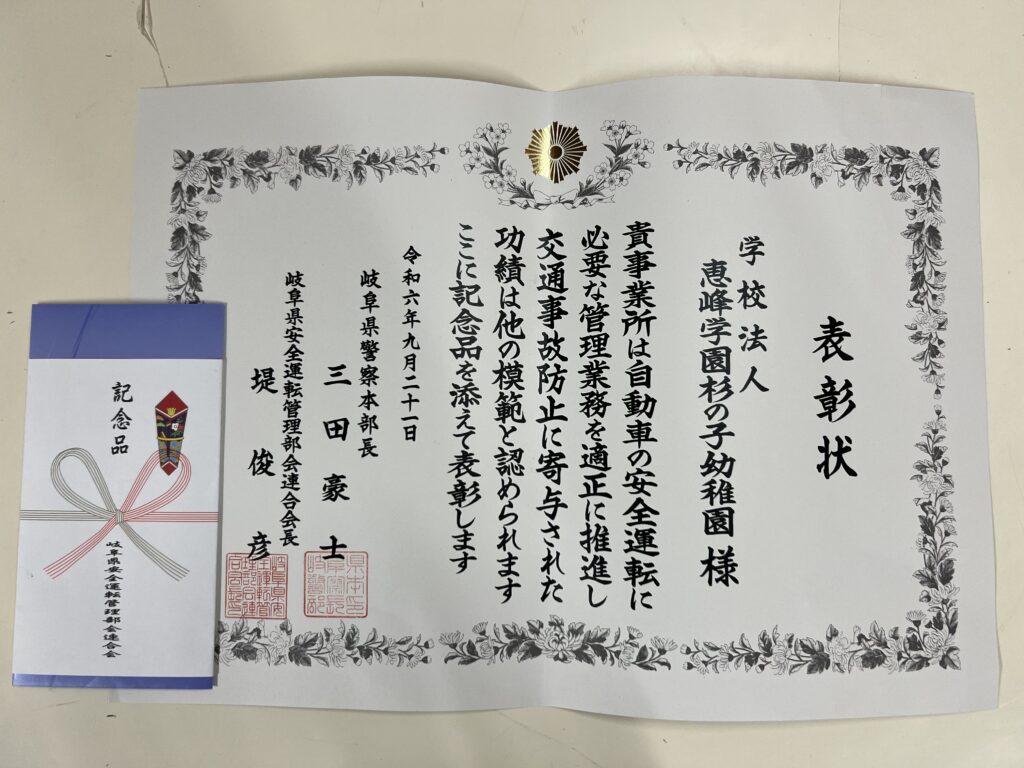 表彰状
学校法人
恵峰学園杉の子幼稚園 様
貴事業所は自動車の安全運転に
必要な管理業務を適正に推進し
交通事故防止に寄与された
功績は他の模範と認められます
ここに記念品を添えて表彰します
令和六年九月二十一日
岐阜県警察本部長
三田豪士
岐阜県安全運転管理部会連合会長
堤俊彦
記念品
岐阜県安全運転管理部会連合会